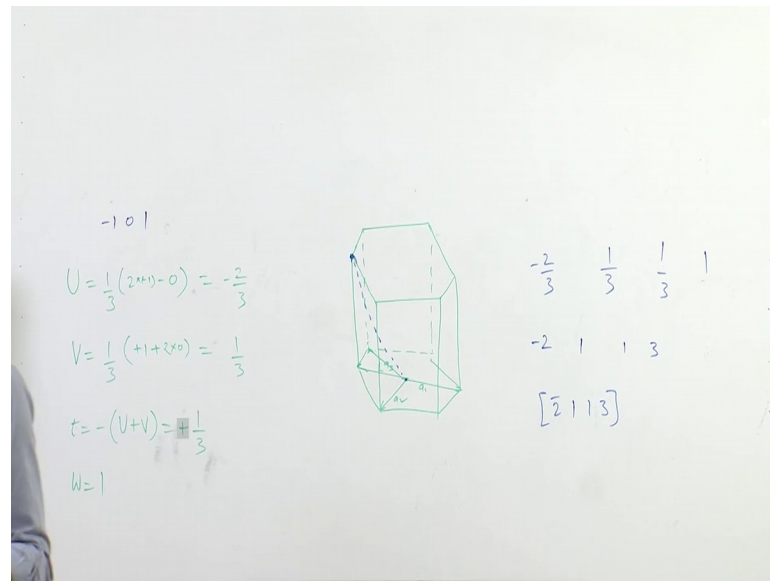 -1 0 1
U = 1/3 (2×+1) - 0) = - 2/3
V = 1/3 (+1 + 2×0) = 1/3
t = -(U+V) = + 1/3
W = 1
a3
a1
a2
-2/3 1/3 1/3 1
-2 1 1 3
[2̄ 1 1 3]